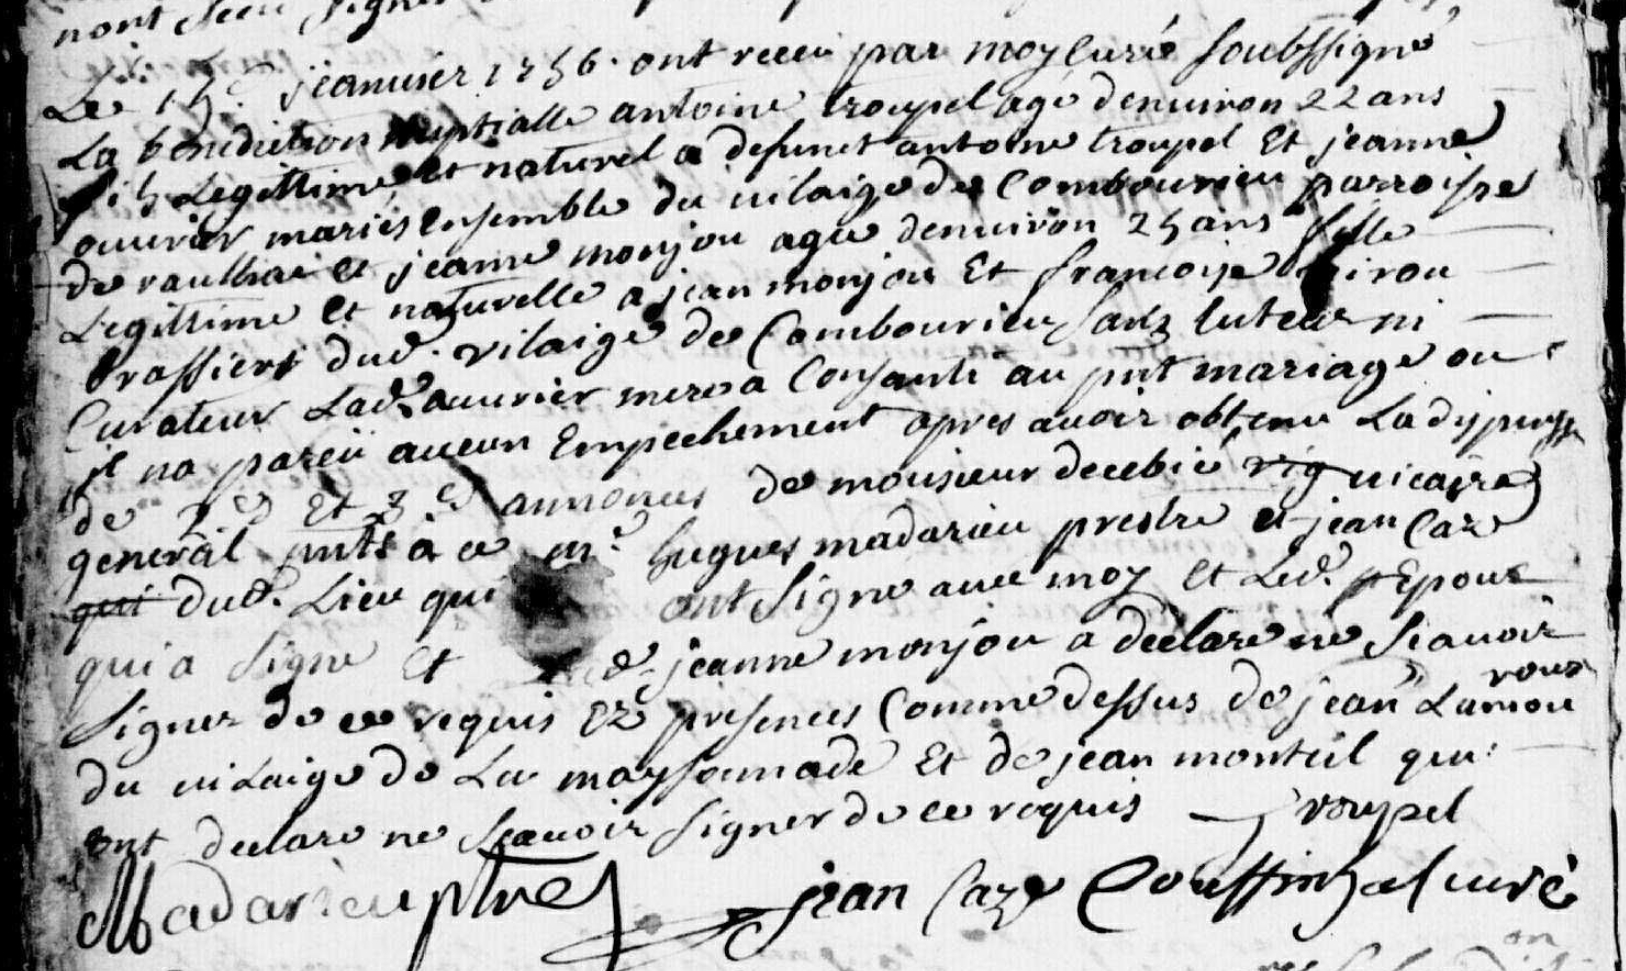 nont sceu signer
Le 15e jeanvier 1756. ont receu par moy curé soubssigné
La benediction nuptialle antoine troupel agé denuiron 22 ans
fils Legittime et naturel a defunct antoine troupel Et jeanne
ouurier mariés Ensemble du uilaige de Combourieu parroisse
de raulhac et jeanne monjou agée denuiron 25 ans fille
Legittime et naturelle a jean monjou Et francoise
brassiers dud. vilaige de Combourieu sans tuteur ni
Curateur Lad. ouurier mere a Consanti au pnt mariage ou
il na pareu aucun Empechement apres auoir obtenu La dispense
de 2e Et 3e annonces de monsieur decebié vig uicaire
general pnts à ce mr. hugues madarieu prestre et jean Caze
qui dud. Lieu qui ont signe auec moy et Led. Epoux
qui a signe et Lad. jeanne monjou a declare ne scauoir
signer de ce requis Ez presences Comme dessus de jean Lamou
roux
du uilaige de La maysounade Et de jean monteil qui
ont declare ne scauoir signer de ce requis troupel
Madarieu ptre jean Caze Couffinhal curé